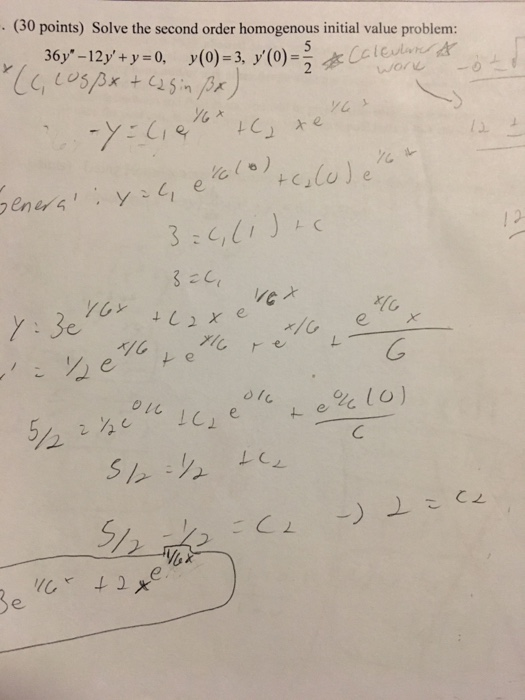 . (30 points) Solve the second order homogenous initial value problem:
36y" − 12y' + y = 0, y(0) = 3, y'(0) = 5/2 * Calculator * work
(C₁ cos βx + C₂ sin βx)
-y = C₁e^(1/6 x) + C₂ xe^(1/6 x)
12 ±
General: y = C₁ e^(1/6(0)) + C₂(0)e^(1/6 x)
12
3 = C₁(1) + C
3 = C₁
y: 3e^(1/6x) + C₂ x e^(1/6 x)
' = 1/2 e^(x/6) + e^(x/6) + e^(x/6) + e^(x/6) x / 6
5/2 = 1/2 e^(0/6) + C₂ e^(0/6) + e^(0/6) (0) / 6
5/2 = 1/2 + C₂
5/2 - 1/2 = C₂ → 2 = C₂
3e^(1/6x) + 2xe^(1/6x)